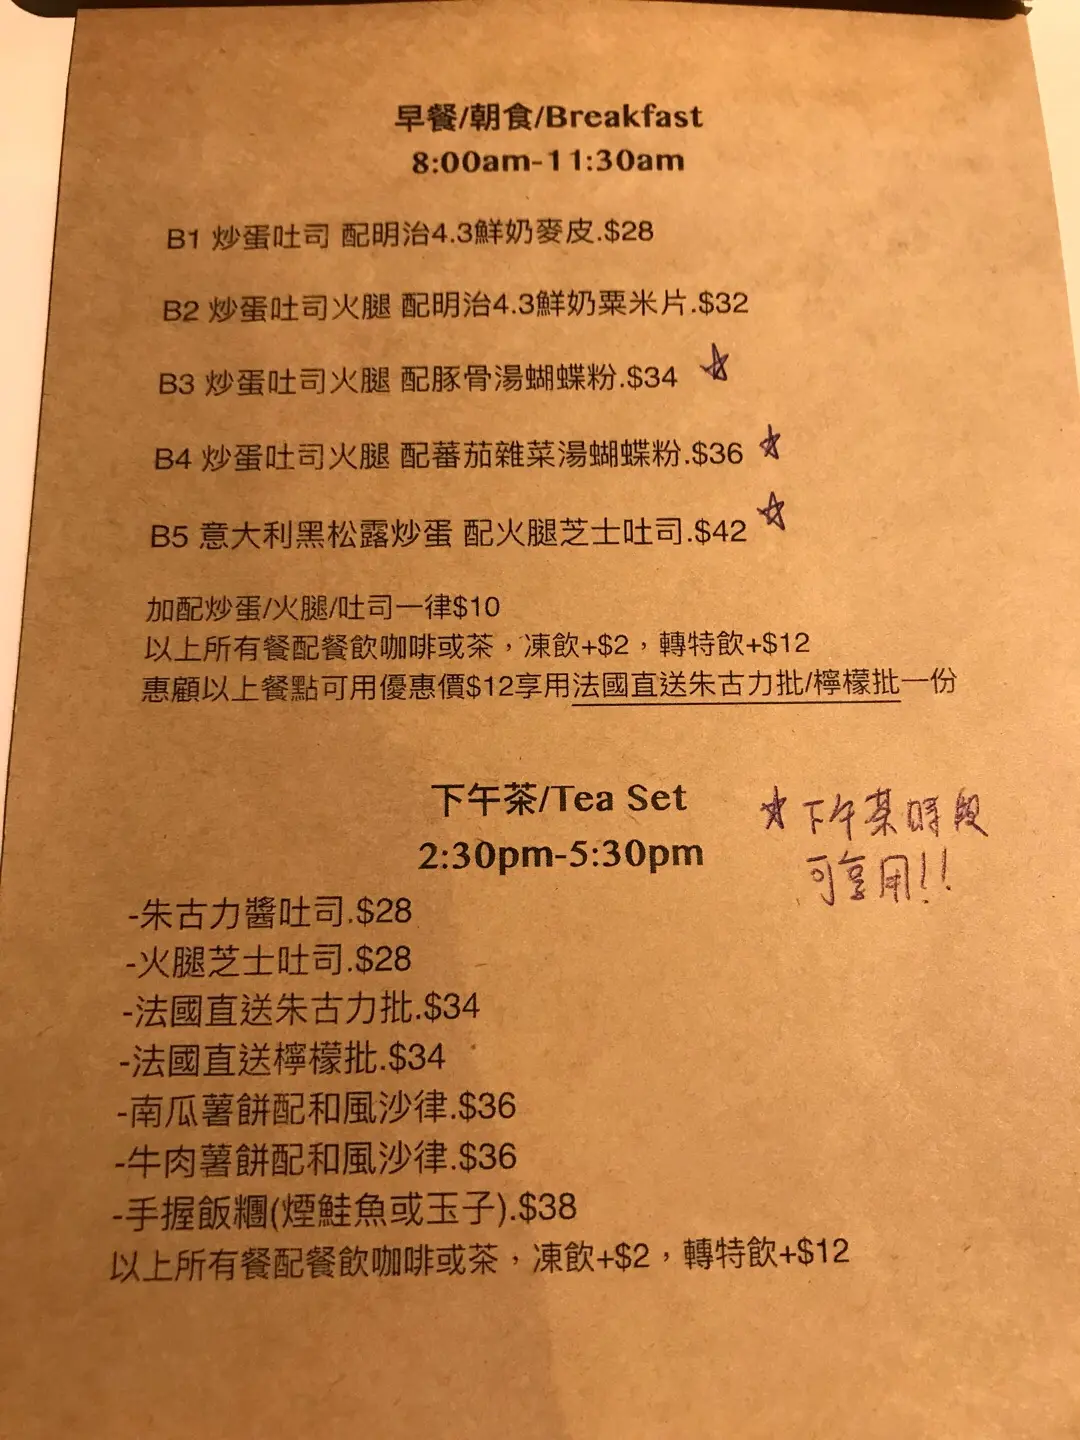 早餐/朝食/Breakfast
8:00am-11:30am
B1 炒蛋吐司 配明治4.3鮮奶麥皮.$28
B2 炒蛋吐司火腿 配明治4.3鮮奶粟米片.$32
B3 炒蛋吐司火腿 配豚骨湯蝴蝶粉.$34 ☆
B4 炒蛋吐司火腿 配蕃茄雜菜湯蝴蝶粉.$36 ☆
B5 意大利黑松露炒蛋 配火腿芝士吐司.$42 ☆
加配炒蛋/火腿/吐司一律$10
以上所有餐配餐飲咖啡或茶，凍飲+$2，轉特飲+$12
惠顧以上餐點可用優惠價$12享用法國直送朱古力批/檸檬批一份
下午茶/Tea Set
2:30pm-5:30pm
☆下午茶時段
可享用!!
-朱古力醬吐司.$28
-火腿芝士吐司.$28
-法國直送朱古力批.$34
-法國直送檸檬批.$34
-南瓜薯餅配和風沙律.$36
-牛肉薯餅配和風沙律.$36
-手握飯糰(煙鮭魚或玉子).$38
以上所有餐配餐飲咖啡或茶，凍飲+$2，轉特飲+$12